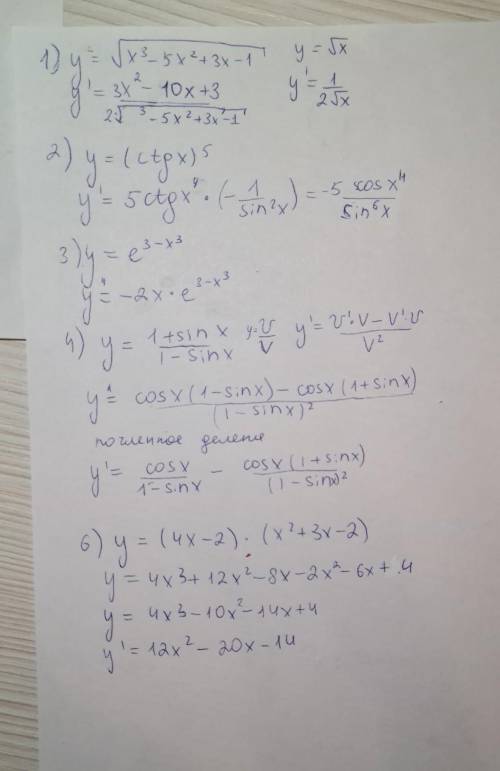 1) y = √(x³ - 5x² + 3x - 1) y = √x
y' = (3x² - 10x + 3)/(2√(³ - 5x² + 3x - 1)) y' = 1/(2√x)
2) y = (ctgx)⁵
y' = 5ctgx⁴ · (- 1/sin²x) = -5 cosx⁴/sin⁶x
3) y = e^(3-x³)
y' = -2x · e^(3-x³)
4) y = (1+sinx)/(1-sinx) y = U/V y' = (U'·V - V'·U)/V²
y' = (cosx(1-sinx) - cosx(1+sinx))/(1-sinx)²
почленное деление
y' = cosx/(1-sinx) - cosx(1+sinx)/(1-sinx)²
6) y = (4x-2) · (x²+3x-2)
y = 4x³+12x²-8x-2x²-6x+4
y = 4x³-10x²-14x+4
y' = 12x²-20x-14